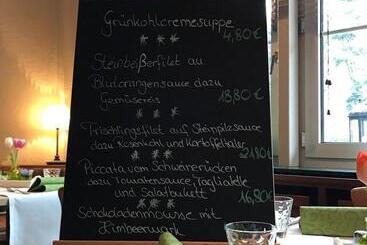 Grünkohlcremesuppe
4,80€
Steinbeißerfilet auf
Blutorangensauce dazu
Gemüsereis 18,80€
Frischlingsfilet auf Steinpilzsauce
dazu Rosenkohl und Kartoffeltaler
21,80€
Piccata vom Schwarerücken
dazu Tomatensauce, Tagliatelle
und Salatbukett 16,80€
Schokoladenmousse mit
Himbeermark